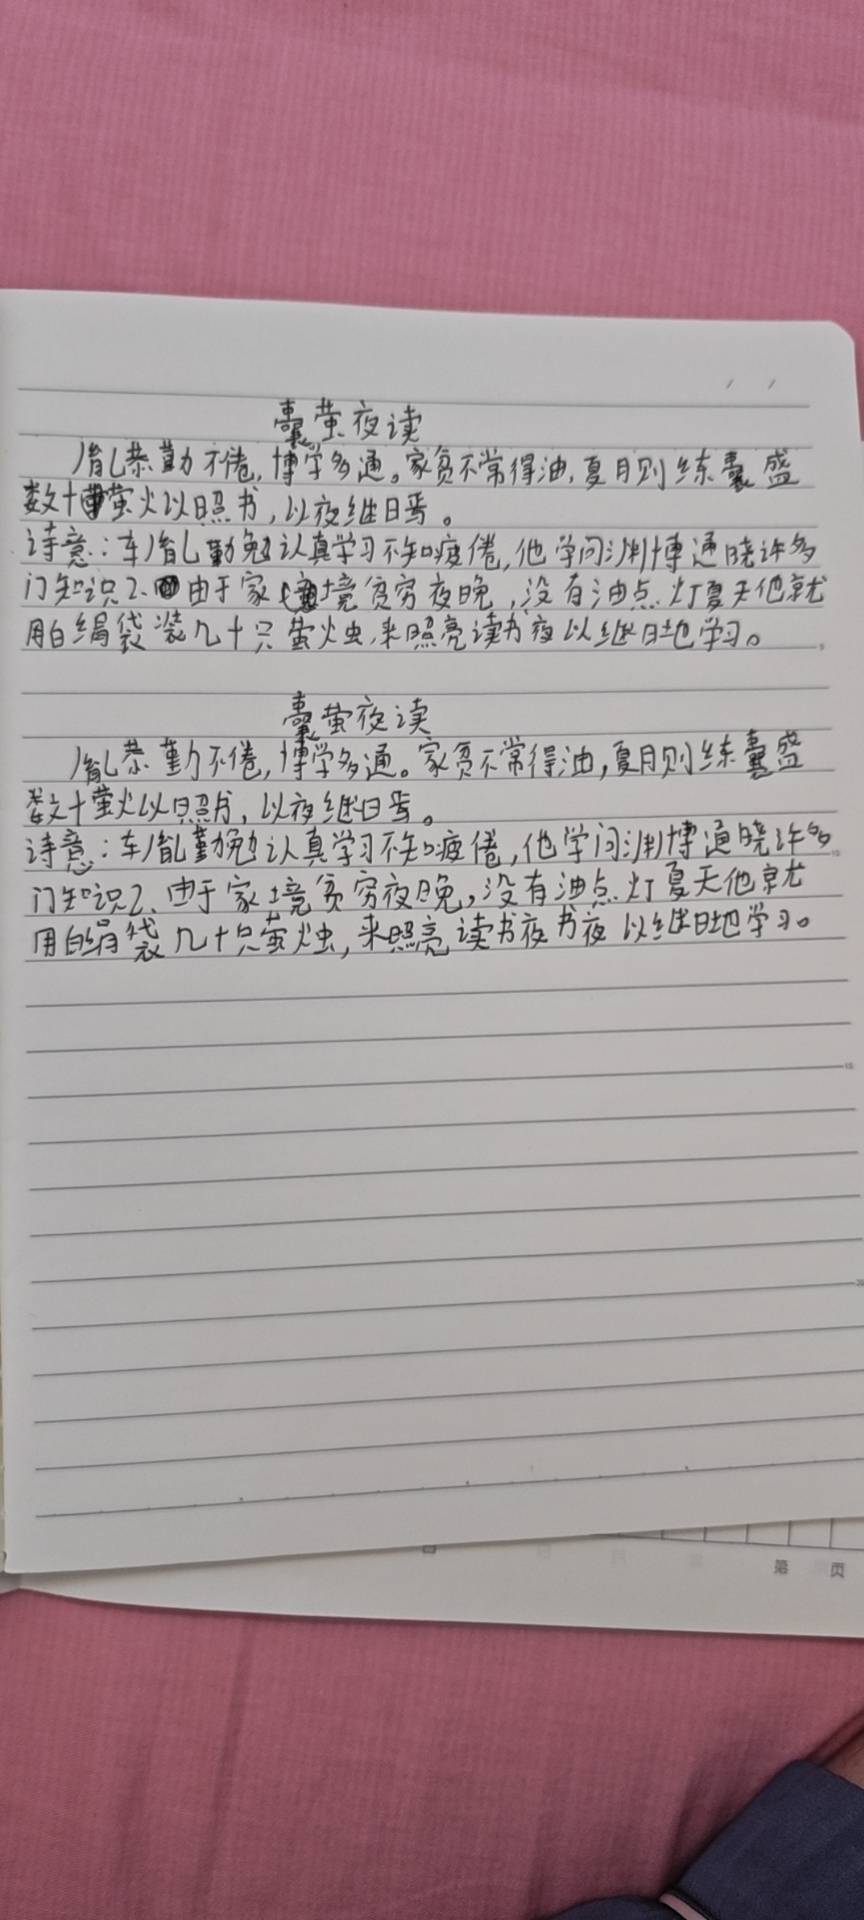 囊萤夜读
胤恭勤不倦，博学多通。家贫不常得油，夏月则练囊盛
数十萤火以照书，以夜继日焉。
诗意：车胤勤勉认真学习不知疲倦，他学问渊博通晓许多
门知识2、由于家境贫穷夜晚，没有油点灯夏天他就
用白绢袋装几十只萤火虫，来照亮读书夜以继日地学习。
囊萤夜读
胤恭勤不倦，博学多通。家贫不常得油，夏月则练囊盛
数十萤火以照书，以夜继日焉。
诗意：车胤勤勉认真学习不知疲倦，他学问渊博通晓许多
门知识2、由于家境贫穷夜晚，没有油点灯夏天他就
用白绢袋几十只萤火虫，来照亮读书夜书夜以继日地学习。
第 页